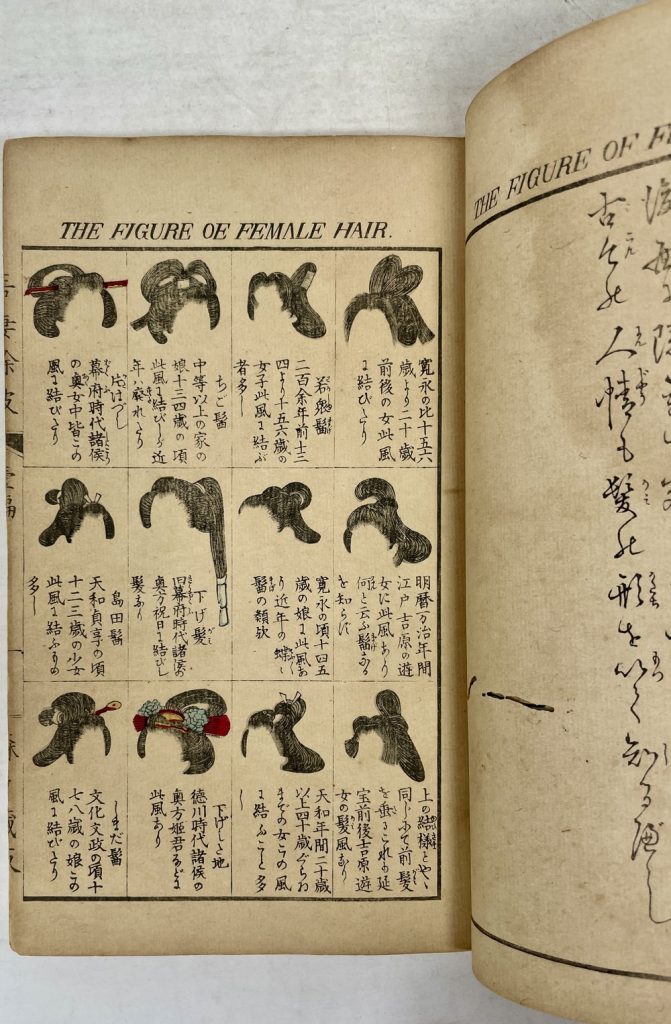 THE FIGURE OE FEMALE HAIR.
寛永の比十五六
歳より二十歳
前後の女此風
に結びたり
二百余年前十三
四より十五六歳の
女子此風に結ぶ
者多し
ちご髷
中等以上の家の
娘十三四歳の頃
此風に結びしが近
年ハ廃れたり
片はづし
幕府時代諸侯
の奥女中皆この
風に結びたり
明暦万治年間
江戸吉原の遊
女に此風あり
何と云ふ髷なる
を知らず
寛永の頃十四五
歳の娘に此風あ
り近年の蝶々
髷の類欤
下げ髪
旧幕府時代諸侯の
奥方祝日に結びし
髪なり
島田髷
天和貞享の頃
十二三歳の少女
此風に結ふもの
多し
上の結様とやゝ
同じふて前髪
を垂るこれハ延
宝前後吉原遊
女の髪風なり
天和年間二十歳
以上四十歳ぐらゐ
までの女この風
に結ふこと多
し
下げした地
徳川時代諸侯の
奥方姫君などに
此風あり
しまだ髷
文化文政の頃十
七八歳の娘この
風に結びたり
THE FIGURE OF
人情も髪の形を以て知る